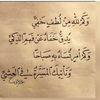 وَكَمْ لِلَّهِ مِنْ لُطْفٍ خَفِيٍّ
يَدِقُّ خَفَاهُ عَنْ فَهْمِ الذَّكِيِّ
وَكَمْ أَمْرٍ تُسَاءُ بِهِ صَبَاحًا
وَتَأْتِيكَ المَسَرَّةُ فِي العَشِيِّ